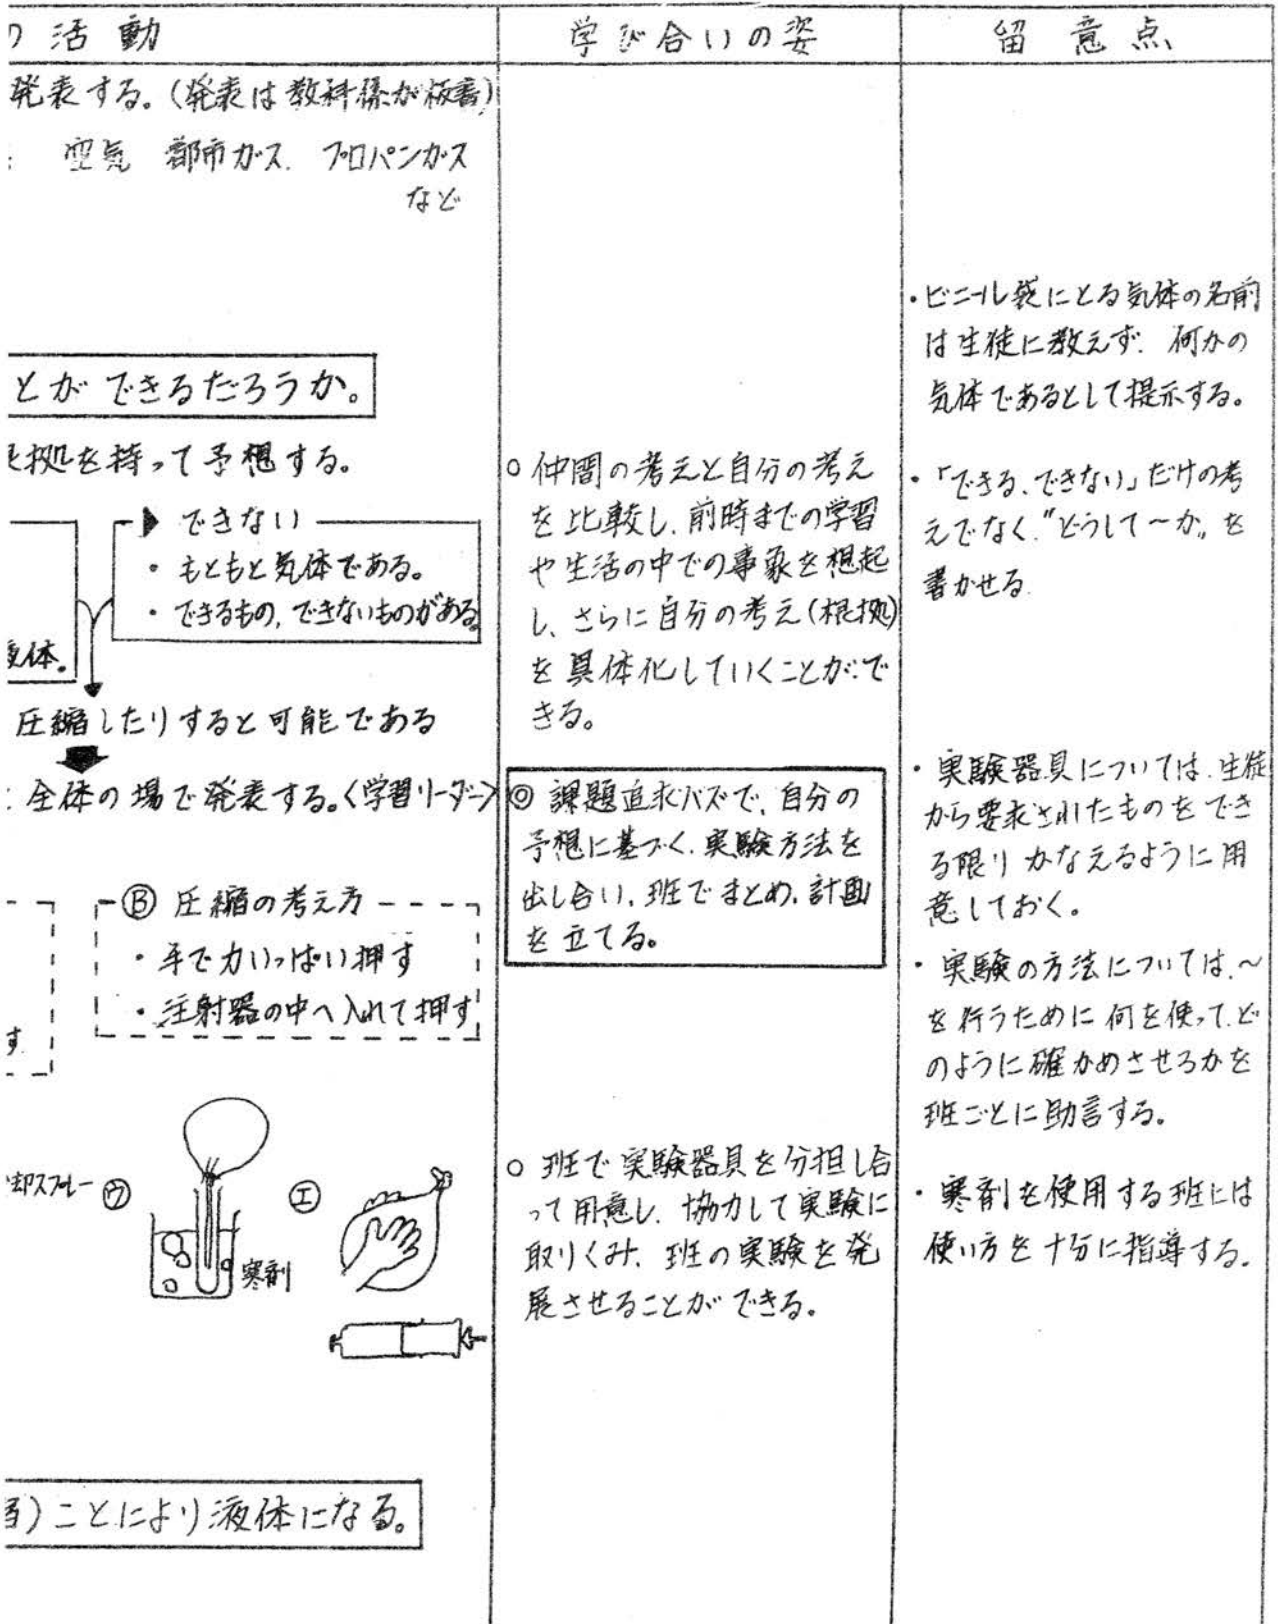 の活動
発表する。(発表は教科係が板書)
: 空気 都市ガス. プロパンガス
など
とができるだろうか。
根拠を持って予想する。
できない
・もともと気体である。
・できるもの, できないものがある
液体。
圧縮したりすると可能である
: 全体の場で発表する。<学習リーダー>
Ⓑ 圧縮の考え方
・手で力いっぱい押す
・注射器の中へ入れて押す
す.
却スプレー
㋒
寒剤
㋓
る)ことにより液体になる。
学び合いの姿
○ 仲間の考えと自分の考え
を比較し、前時までの学習
や生活の中での事象を想起
し、さらに自分の考え(根拠)
を具体化していくことがで
きる。
◎ 課題追求バズで、自分の
予想に基づく、実験方法を
出し合い、班でまとめ、計画
を立てる。
○ 班で実験器具を分担し合
って用意し、協力して実験に
取りくみ、班の実験を発
展させることができる。
留意点
・ビニール袋にとる気体の名前
は生徒に教えず、何かの
気体であるとして提示する。
・「できる、できない」だけの考
えでなく、"どうして〜か„を
書かせる.
・実験器具については、生徒
から要求されたものをでき
る限りかなえるように用
意しておく。
・実験の方法については、〜
を行うために何を使って、ど
のように確かめさせるかを
班ごとに助言する。
・寒剤を使用する班には
使い方を十分に指導する。